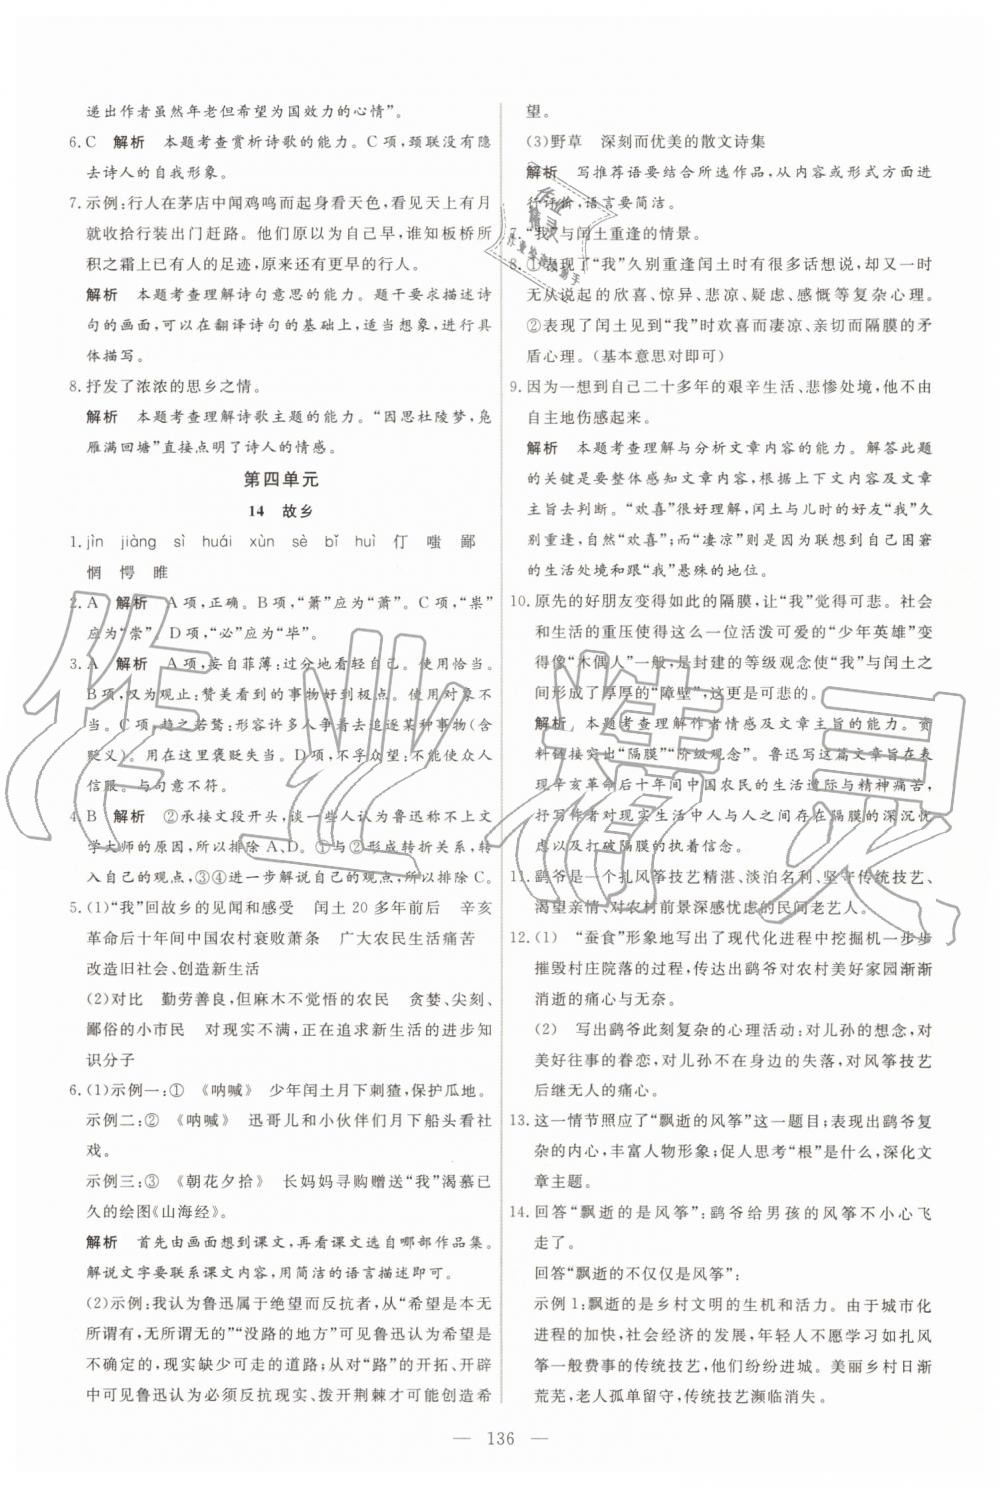 递出作者虽然年老但希望为国效力的心情”。
6. C 解析 本题考查赏析诗歌的能力。C 项,颈联没有隐
去诗人的自我形象。
7. 示例:行人在茅店中闻鸡鸣而起身看天色,看见天上有月
就收拾行装出门赶路。他们原以为自己早,谁知板桥所
积之霜上已有人的足迹,原来还有更早的行人。
解析 本题考查理解诗句意思的能力。题干要求描述诗
句的画面,可以在翻译诗句的基础上,适当想象,进行具
体描写。
8. 抒发了浓浓的思乡之情。
解析 本题考查理解诗歌主题的能力。“因思杜陵梦,凫
雁满回塘”直接点明了诗人的情感。
第四单元
14 故乡
1. jìn jiàng sì huái xùn sè bǐ huì 仃 嗤 鄙
惘 愕 睢
2. A 解析 A 项,正确。B 项,“箫”应为“萧”。C 项,“祟”
应为“崇”。D 项,“必”应为“毕”。
3. A 解析 A 项,妄自菲薄:过分地看轻自己。使用恰当。
B 项,叹为观止:赞美看到的事物好到极点。使用不恰
当。C 项,趋之若鹜:形容许多人争着去追逐某种事物(含
贬义)。用在这里褒贬失当。D 项,不容置疑:不能让人
信服。与句意不符。
4. B 解析 ②承接文段开头,谈一些人认为鲁迅称不上文
学大师的原因,所以排除 A、D。①与②形成转折关系,引
入自己的观点,③④进一步解说自己的观点,所以排除 C。
5. (1)“我”回故乡的见闻和感受 闰土 20 多年前后 辛亥
革命后十年间中国农村衰败萧条 广大农民生活痛苦
改造旧社会、创造新生活
(2)对比 勤劳善良,但麻木不觉悟的农民 贪婪、尖刻、
鄙俗的小市民 对现实不满,正在追求新生活的进步知
识分子
6. (1)示例一:① 《呐喊》 少年闰土月下刺猹,保护瓜地。
示例二:② 《呐喊》 迅哥儿和小伙伴们月下船头看社
戏。
示例三:③ 《朝花夕拾》 长妈妈寻购赠送“我”渴慕已
久的绘图《山海经》。
解析 首先由画面想到课文,再看课文选自哪部作品集。
解说文字要联系课文内容,用简洁的语言描述即可。
(2)示例:我认为鲁迅属于绝望而反抗者,从“希望是本无
所谓有,无所谓无的”“没路的地方”可见鲁迅认为希望渺
茫的,现实缺少可走的道路;从对“路”的开拓、开辟
中可见鲁迅认为必须反抗现实、拨开荆棘才可能创造希
望。
(3)野草 深刻而优美的散文诗集
解析 写推荐语要结合所选作品,从内容或形式方面进
行评价,语言要简洁。
7. “我”与闰土重逢的情景。
8. ①表现了“我”久别重逢闰土时有很多话想说,却又一时
无从说起的欣喜、惊异、悲凉、疑虑、感慨等复杂心理。
②表现了闰土见到“我”时欢喜而凄凉、亲切而隔膜的矛
盾心理。(基本意思对即可)
9. 因为一想到自己二十多年的艰辛生活、悲惨处境,他不由
自主地伤感起来。
解析 本题考查理解与分析文章内容的能力。解答此题
的关键是要整体感知文章内容,根据上下文内容及文章
主旨去判断。“欢喜”很好理解,闰土与儿时的好友“我”久
别重逢,自然“欢喜”;而“凄凉”,可以联系他自己困窘
的生活处境和跟“我”悬殊的地位。
10. 原先的好朋友变得如此的隔膜,让“我”觉得可悲。社会
和生活的重压使得这么一位活泼可爱的“少年英雄”变
得像“木偶人”一般,是封建的等级观念使“我”与闰土之
间形成了厚厚的“障壁”,这更是可悲的。
解析 本题考查理解作者情感及文章主旨的能力。资
料链接突出“隔膜”“阶级观念”。鲁迅写这篇文章旨在表
现辛亥革命后十年间中国农民的生活遭际与精神痛苦,
抒写作者对现实生活中人与人之间存在隔膜的深沉忧
虑以及打破隔膜的执着信念。
11. 鹞爷是一个扎风筝技艺精湛、淡泊名利、坚守传统技艺、
渴望亲情、对农村前景深感忧虑的民间老艺人。
12. (1) “蚕食”形象地写出了现代化进程中挖掘机一步步
摧毁村庄院落的过程,传达出鹞爷对农村美好家园渐渐
消逝的痛心与无奈。
(2) 写出鹞爷此刻复杂的心理活动:对儿孙的想念,对
美好往事的眷恋,对儿孙不在身边的失落,对风筝技艺
后继无人的痛心。
13. 这一情节照应了“飘逝的风筝”这一题目;表现出鹞爷复
杂的内心,丰富人物形象;促人思考“根”是什么,深化文
章主题。
14. 回答“飘逝的是风筝”:鹞爷给男孩的风筝不小心飞
走了。
回答“飘逝的不仅仅是风筝”:
示例 1:飘逝的是乡村文明的生机和活力。由于城市化
进程的加快,社会经济的发展,年轻人不愿学习如扎风
筝一般费事的传统技艺,他们纷纷进城。美丽乡村日渐
荒芜,老人孤单留守,传统技艺濒临消失。
— 136 —
作业精灵